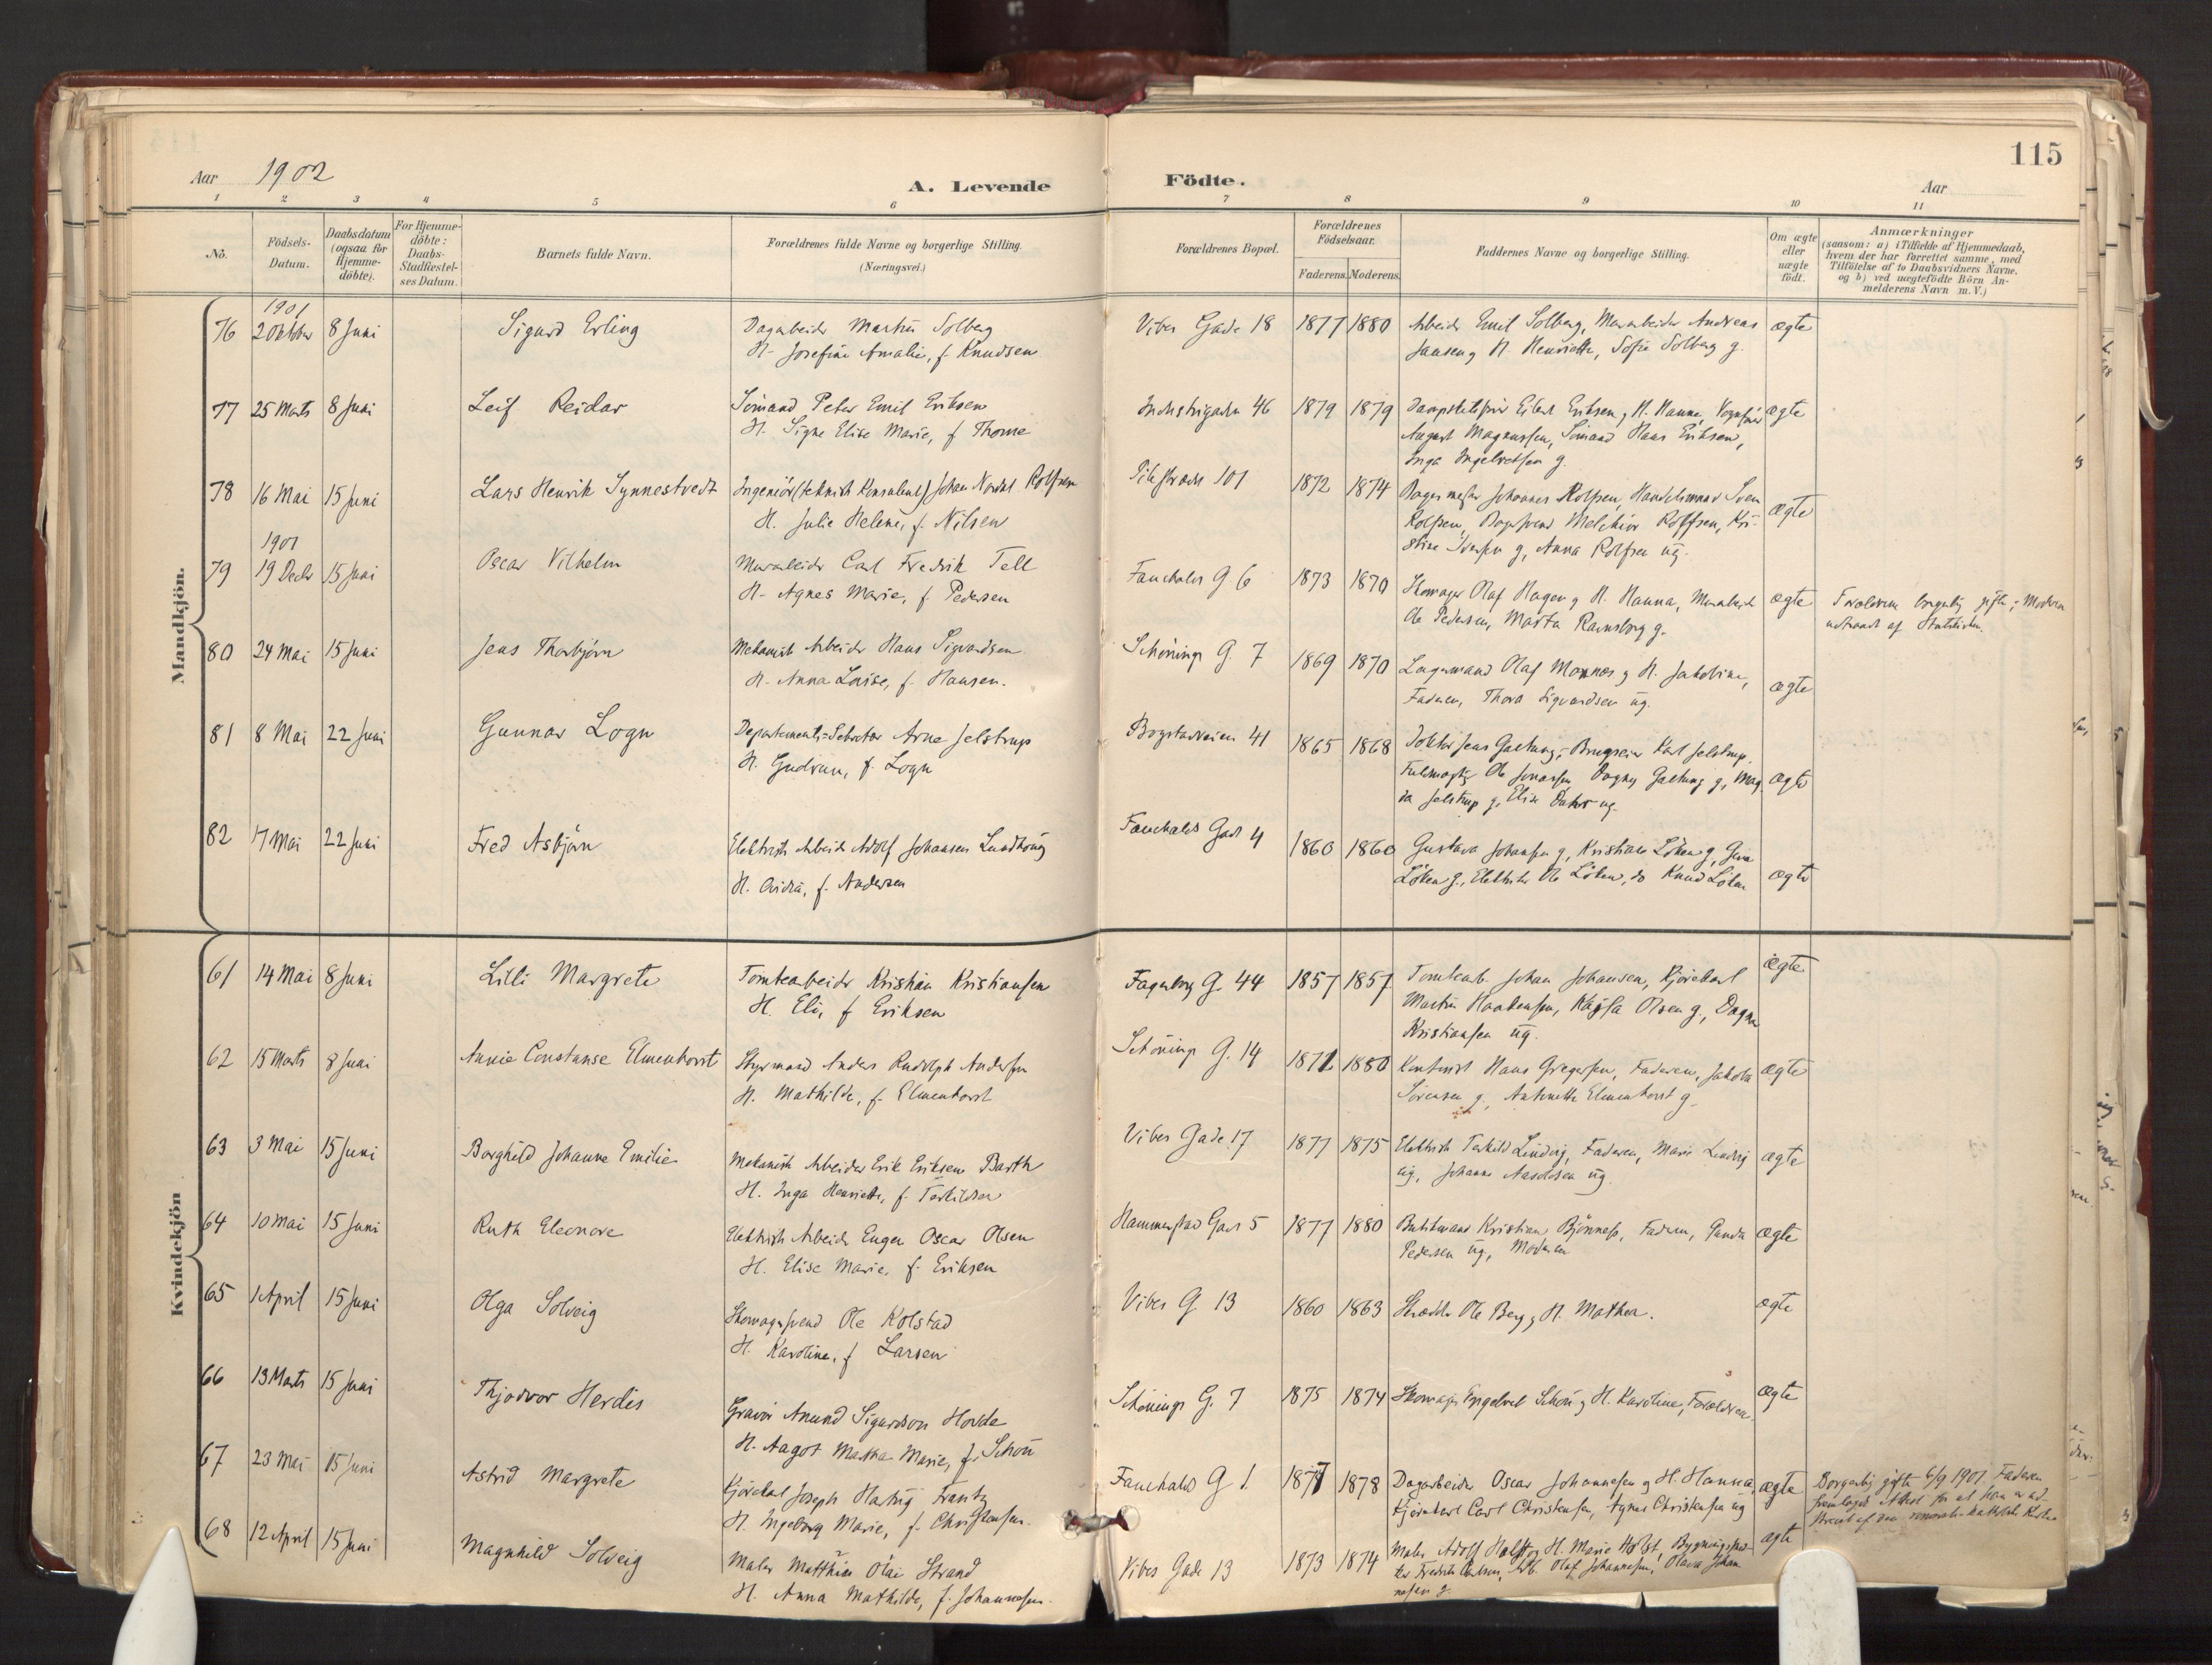 115
Aar 1902
A. Levende Födte.
Aar
1 2 3 4 5 6 7 8 9 10 11
No.
Födsels-
Datum.
Daabsdatum
(ogsaa for
Hjemme-
döbte).
For Hjemme-
döbte:
Daabs-
Stadfæstel-
ses Datum.
Barnets fulde Navn.
Forældrenes fulde Navne og borgerlige Stilling.
(Næringsvei.)
Forældrenes Bopæl.
Forældrenes
Födselsaar.
Faderens. Moderens.
Faddernes Navne og borgerlige Stilling.
Om ægte
eller
uægte
födt.
Anmærkninger
(saasom: a) i Tilfælde af Hjemmedaab,
hvem der har forrettet samme, med
Tilföielse af to Daabsvidners Navne.
og b) ved uægtefödte Börn An-
melderens Navn m. V.)
Mandkjön.
1901
76 2 Oktober 8 Juni Sigurd Erling Dagarbeider Martin Solberg Vibes Gade 18 1877 1880 Arbeider Emil Solberg, Murarbeider Andreas ægte
H. Josefine Amalie, f. Knudsen Jansen og H. Henriette, Sofie Solberg g.
77 25 Marts 8 Juni Leif Reidar Sömand Peter Emil Eriksen Industrigaden 46 1879 1879 Eriksen, H. Hanna, ægte
H. Signe Elise Marie, f. Thorne August Magnussen, Sömand Hans Eriksen,
Inga Ingebretsen g.
78 16 Mai 15 Juni Lars Henrik Synnestvedt Ingeniör (teknisk Konsulent) Johan Rolfsen Pilestrædet 101 1872 1874 Johannes Rolfsen, Handelsmand Sven ægte
H. Julie Helene, f. Nilsen Rolfsen, Melchior Rolfsen, Kri-
stine g, Anna Rolfsen ug.
1901
79 19 Decbr 15 Juni Oscar Vilhelm Murarbeider Carl Fredrik Tell Fauchalds G 6 1873 1870 Skomager Olaf Hagen g H. Hanna, Murarbeider ægte Forældrene borgerlig gifte; Moderen
H. Agnes Marie, f. Pedersen Ole Pedersen, Marta Ramsborg g. udtraadt af Statskirken.
80 24 Mai 15 Juni Jens Thorbjörn Mekanisk Arbeider Hans Sigvardsen Schönings G 7 1869 1870 Lagermand Olaf Monnes g H. Jakobine, ægte
H. Anna Lovise, f. Hansen. Faderen, Thora Sigvardsen ug.
81 8 Mai 22 Juni Gunnar Logn Departements-Sekretær Arne Jelstrup Bogstadveien 41 1865 1868 Doktor Jens Galtung, Brugseier Karl Jelstrup, ægte
H. Gudrun, f. Logn Fuldmægtig Ole Dagny Galtung g, Mag
da Jelstrup g, Elise ug.
82 17 Mai 22 Juni Fred Asbjörn Elektrisk Arbeider Adolf Johansen Lundhaug Fauchalds Gade 4 1860 1860 Gustava Johansen g, Kristian Löken g, ægte
H. f. Andersen Löken g., Ole Löken, do Knud Löken
Kvindekjön
61 14 Mai 8 Juni Lilli Margrete Tomtearbeider Kristian Kristiansen Fagerborg G. 44 1857 1857 Tomtearb. Johan Johansen, Kjörekarl ægte
H. Eli, f Eriksen Martin Haakensen, Kaysa Olsen g., Dagny
Kristiansen ug.
62 15 Marts 8 Juni Annie Constanse Elmenhorst Styrmand Anders Rudolph Andersen Schönings G. 14 1871 1880 Kontorist Hans Gregersen, Faderen, ægte
H. Mathilde, f. Elmenhorst Sörensen g, Antonette Elmenhorst g.
63 3 Mai 15 Juni Borghild Johanne Emilie Mekanisk Arbeider Erik Eriksen Barth Vibes Gade 17 1877 1875 Faderen, Marie ægte
H. Inga Henriette, f. Terkildsen ug, Johanne ug.
64 10 Mai 15 Juni Ruth Eleonore Elektrisk Arbeider Eugen Oscar Olsen Hammerstad Gade 5 1877 1880 Kristian Björnness, Faderen, ægte
H. Elise Marie, f. Eriksen Pedersen ug, Moderen
65 1 April 15 Juni Olga Solveig Skomagersvend Ole Kolstad Vibes G 13 1860 1863 Skrædder Ole Berg g H. Mathea. ægte
H. Karoline, f Larsen
66 13 Marts 15 Juni Thjodvor Herdis Gravör Amund Sigurdson Hovde Schönings G. 7 1875 1874 Skomager Engebret Schou g H. Karoline, Forældrene. ægte
H. Aagot Marie, f. Schou
67 23 Mai 15 Juni Astrid Margrete Kjörekarl Joseph Frantz Fauchalds G 1 1877 1878 Dagarbeider Oscar Johannesen g H. Hanna, ægte Borgerlig gifte 6/9 1901. Faderen
H. Ingeborg Marie, f. Christensen. Kjörekarl Carl Christensen, Agnes Christensen ug fremlagde Attest for at han er ud-
traadt af den romersk-katholske Kirke
68 12 April 15 Juni Magnhild Solveig Maler Matthias Olai Strand Vibes Gade 13 1873 1874 Maler Adolf Holst g H. Marie Holst, ægte
H. Anna Mathilde, f. Johannesen. Fredrik Olaf Johannesen, Olava Johan
nesen g